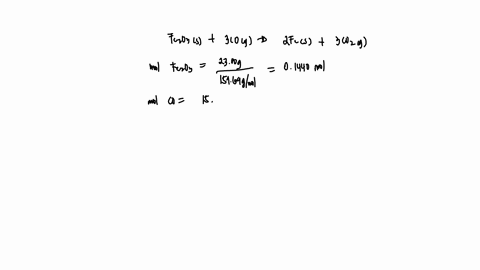 Fe₂O₃(s) + 3CO(g) → 2Fe(s) + 3CO₂(g)
mol Fe₂O₃ = 23.00g / 159.69g/mol = 0.1440 mol
mol CO = 15.